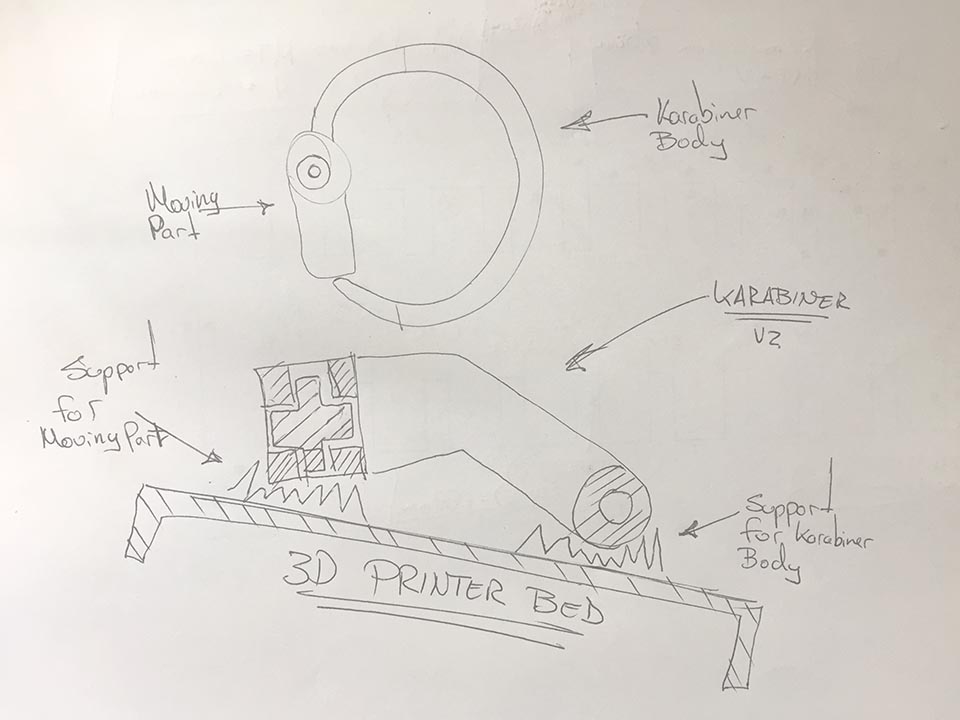 Karabiner
Body
Moving
Part
KARABINER
V2
Support
for
Moving Part
Support
for Karabiner
Body
3D PRINTER BED